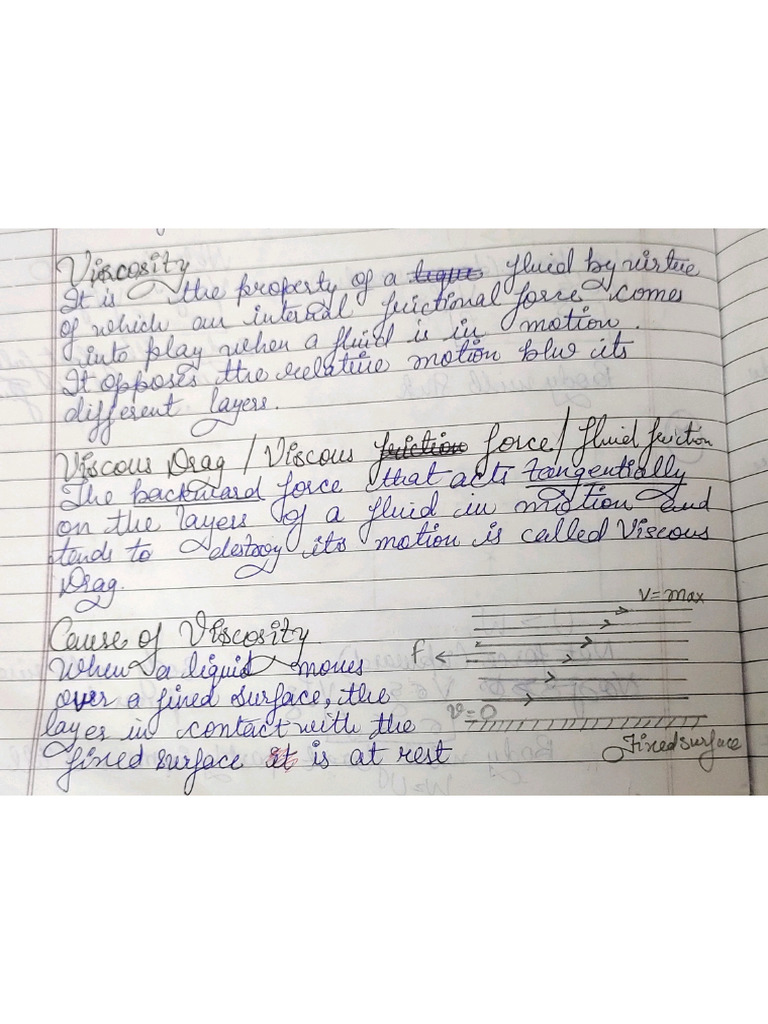 Viscosity
It is the property of a fluid by virtue
of which an internal frictional force comes
into play when a fluid is in motion.
It opposes the relative motion b/w its
different layers.
Viscous Drag / Viscous friction force / fluid friction
The backward force that acts tangentially
on the layers of a fluid in motion and
tends to destroy its motion is called Viscous
Drag.
Cause of Viscosity
When a liquid moves
over a fixed surface, the
layer in contact with the
fixed surface it is at rest
v=max
F
v=0
Fixed surface